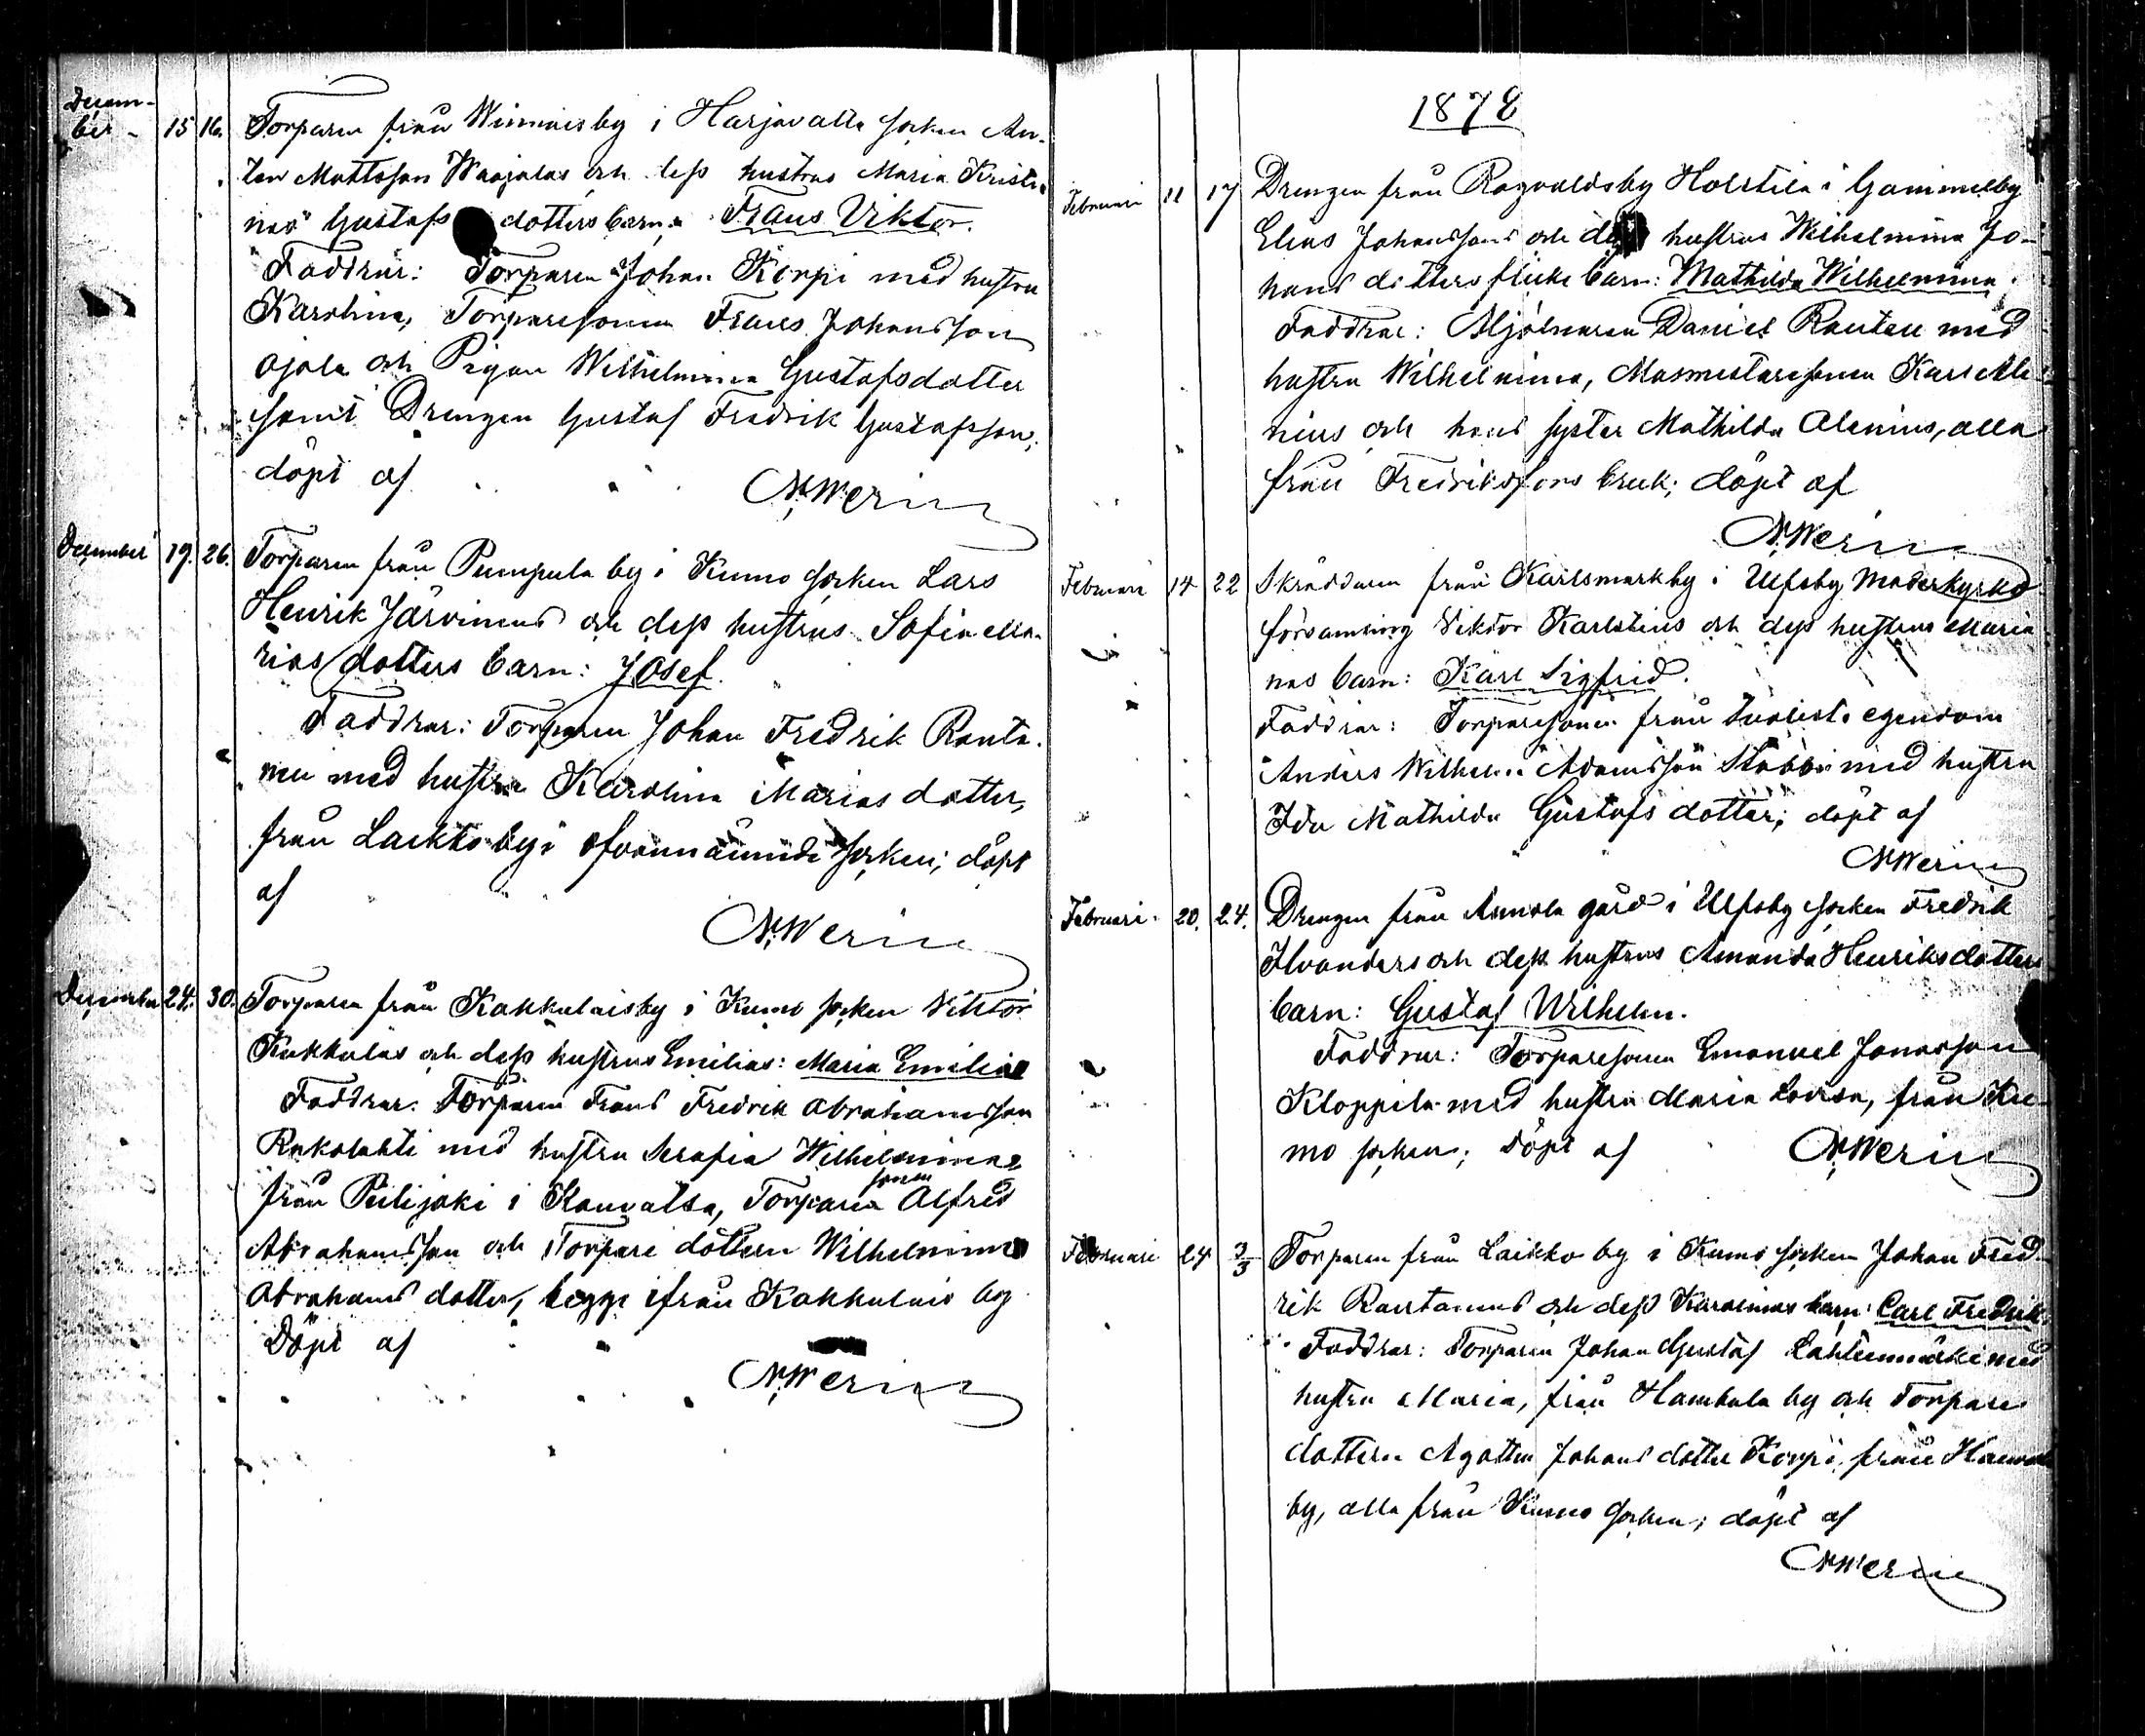 Decem-
ber - 15 16. Torparen från Winnais by i Harjavalta socken An-
ton Mattsson Waajalas och dess hustrus Maria Kristi-
nas Gustafs dotters barn: Frans Viktor.
Faddrar: Torparen Johan Korpi med hustru
Karolina, Torparesonen Frans Johansson
Ojala och Pigan Wilhelmina Gustafsdotter
samt Drengen Gustaf Fredrik Gustafsson;
döpt af
N. Werin
December 19. 26. Torparen från Pumpula by i Kumo socken Lars
Henrik Järvinens och dess hustrus Sofia Ma-
rias dotters barn: Josef.
Faddrar: Torparen Johan Fredrik Ranta-
nen med hustru Karolina Marias dotter,
från Laikko by i socken; döpt
af
N. Werin
December 24. 30. Torparen från Kakkulais by i Kumo socken Viktor
Kukkulas och dess hustrus Emilias: Maria Emilia
Faddrar: Torparen Frans Fredrik Abrahamsson
Rukolahti med hustru Serafia Wilhelmina
från Peilijoki i Kauvatsa, Torpare sonen Alfred
Abrahamsson och Torpare dottern Wilhelmina
Abrahams dotter, begge ifrån Kakkulais by
Döpt af
N. Werin
1878
Februari 11 17 Drengen från Ragvaldsby Holstila i Gammelby
Elias Johanssons och dess hustrus Wilhelmina Jo-
hans dotters flicke barn: Mathilda Wilhelmina.
Faddrar: Mjölnaren Daniel Rautell med
hustru Wilhelmina, Masmästaresonen Karl Ale-
nius och hans syster Mathilda Alenius, alla
från Fredriksfors bruk; döpt af
N. Werin
Februari 14 22 Skräddaren från Karlsmark by i Ulfsby Moderkyrko
församling Viktor Karlstins och dess hustrus Maria
nas barn: Karl Sigfrid.
Faddrar: Torparesonen från egendom
Anders Wilhelm Adamsson Stabbi med hustru
Ida Mathilda Gustafs dotter; döpt af
N. Werin
Februari 20. 24. Drengen från Anola gård i Ulfsby socken Fredrik
Ilvanders och dess hustrus Amanda Henriksdotters
barn: Gustaf Wilhelm.
Faddrar: Torparesonen Emanuel Jonasson
Kloppila med hustru Maria Lovisa, från Ku-
mo socken; döpt af N. Werin
Februari 24 3/3 Torparen från Laikko by i Kumo socken Johan Fred-
rik Rantanens och dess Karolinas barn: Carl Fredrik.
Faddrar: Torparen Johan Gustaf Lähteenmäki med
hustru Maria, från Haukala by och Torpare
dottern Agatha Johans dotter Korpi, från
by, alla från Kumo socken; döpt af
N. Werin